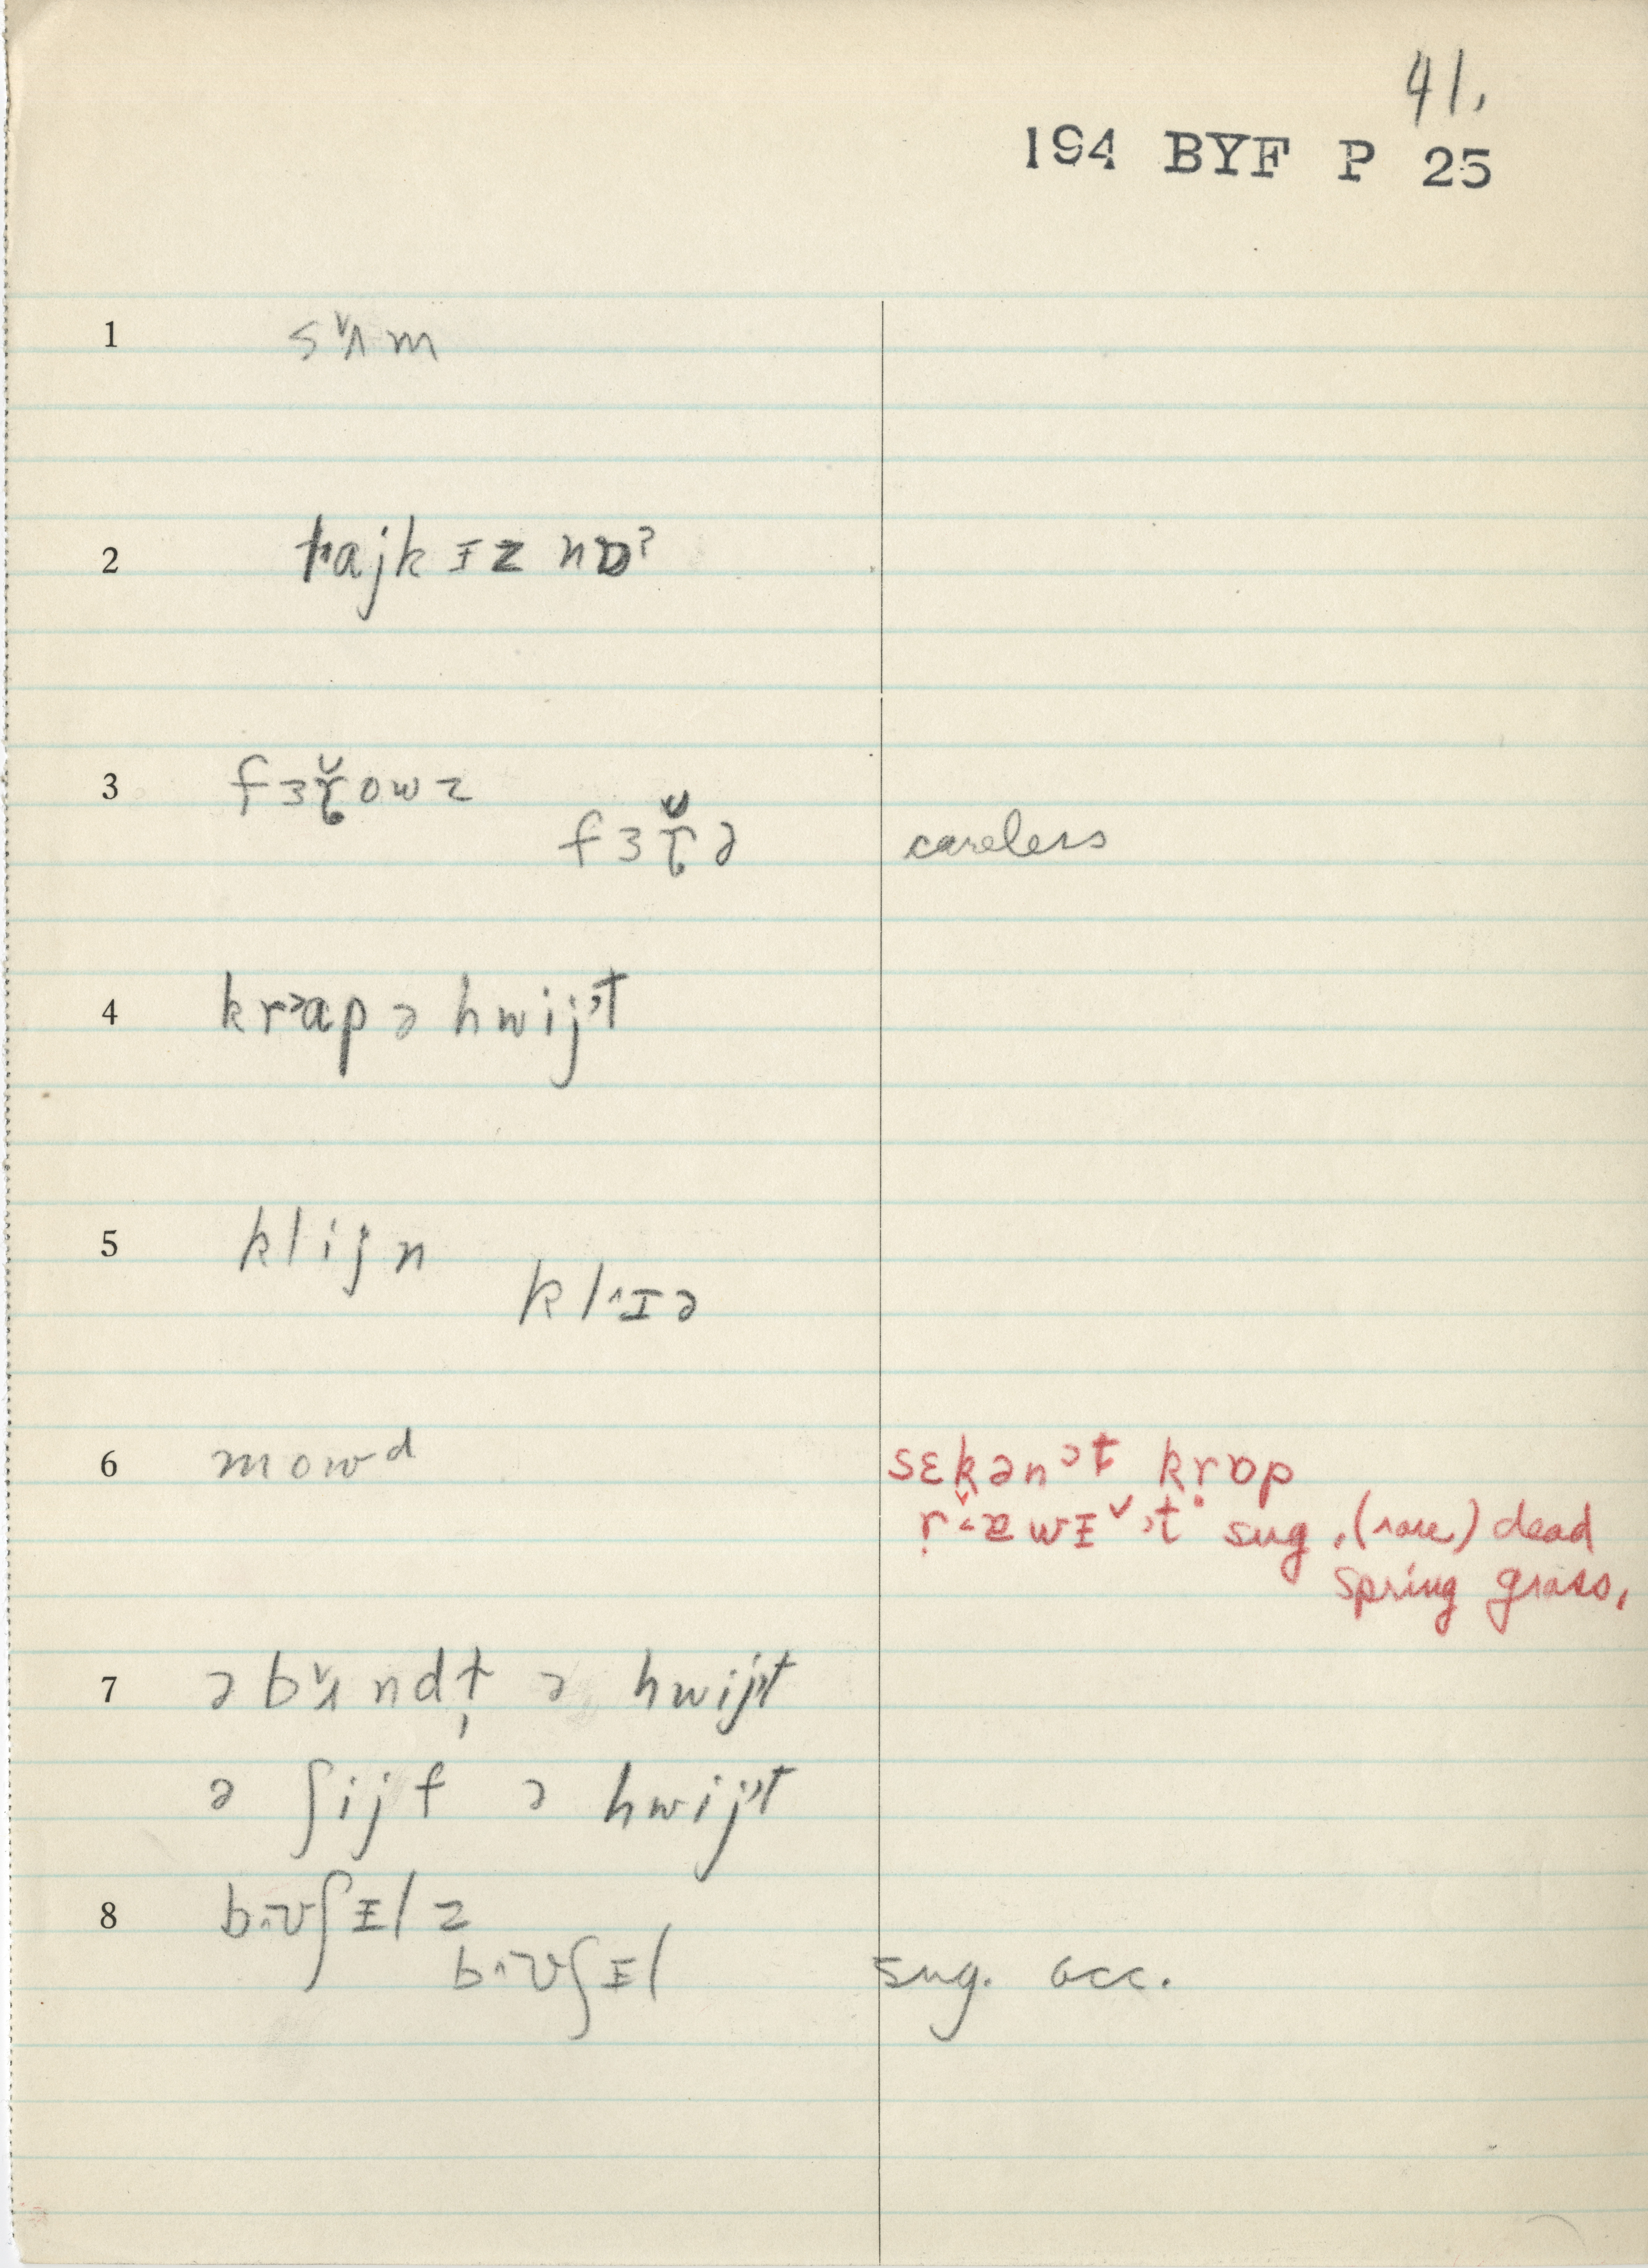 41.
194 BYF P 25
1 sʌ̌m
2 rajk ɪz nɒ?
3 fɜr̆owz
fɜr̆ə careless
4 krɑp ə hwijᵊt
5 klijn
kl^ɪə
6 mowᵈ sɛkənᵊt krɒp
sug. (rare) dead
spring grass.
7 ə bʌ̌ndɫ ə hwijᵊt
ə ʃijf ə hwijᵊt
8 b^ʊʃɪlz
b^ʊʃɪl sug. occ.